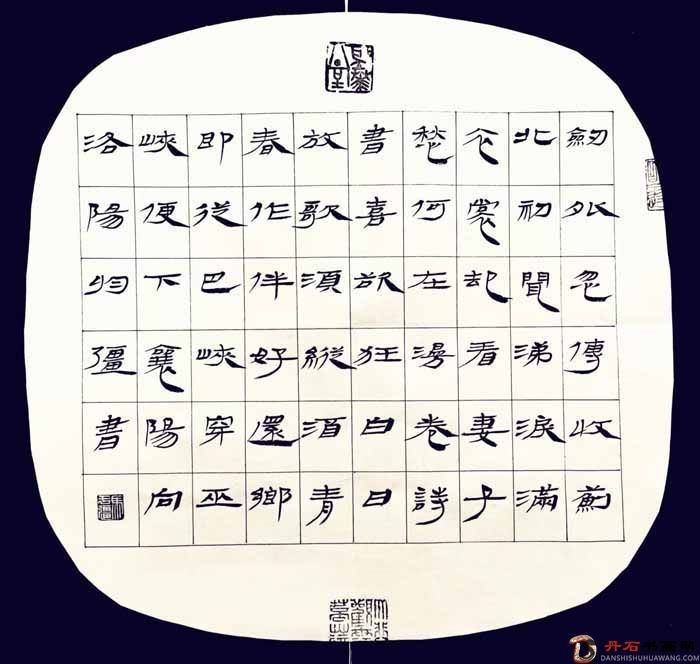 劒外忽傳收薊
北初聞涕淚滿
衣裳却看妻子
愁何在漫卷詩
書喜欲狂白日
放歌須縱酒青
春作伴好還鄉
即從巴峽穿巫
峽便下襄陽向
洛陽彊書
丹石书画网
DANSHISHUHUAWANG.COM